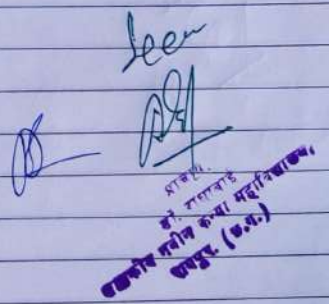 Seen
प्राचार्य,
डॉ. राधाबाई
शासकीय नवीन कन्या महाविद्यालय,
रायपुर (छ.ग.)